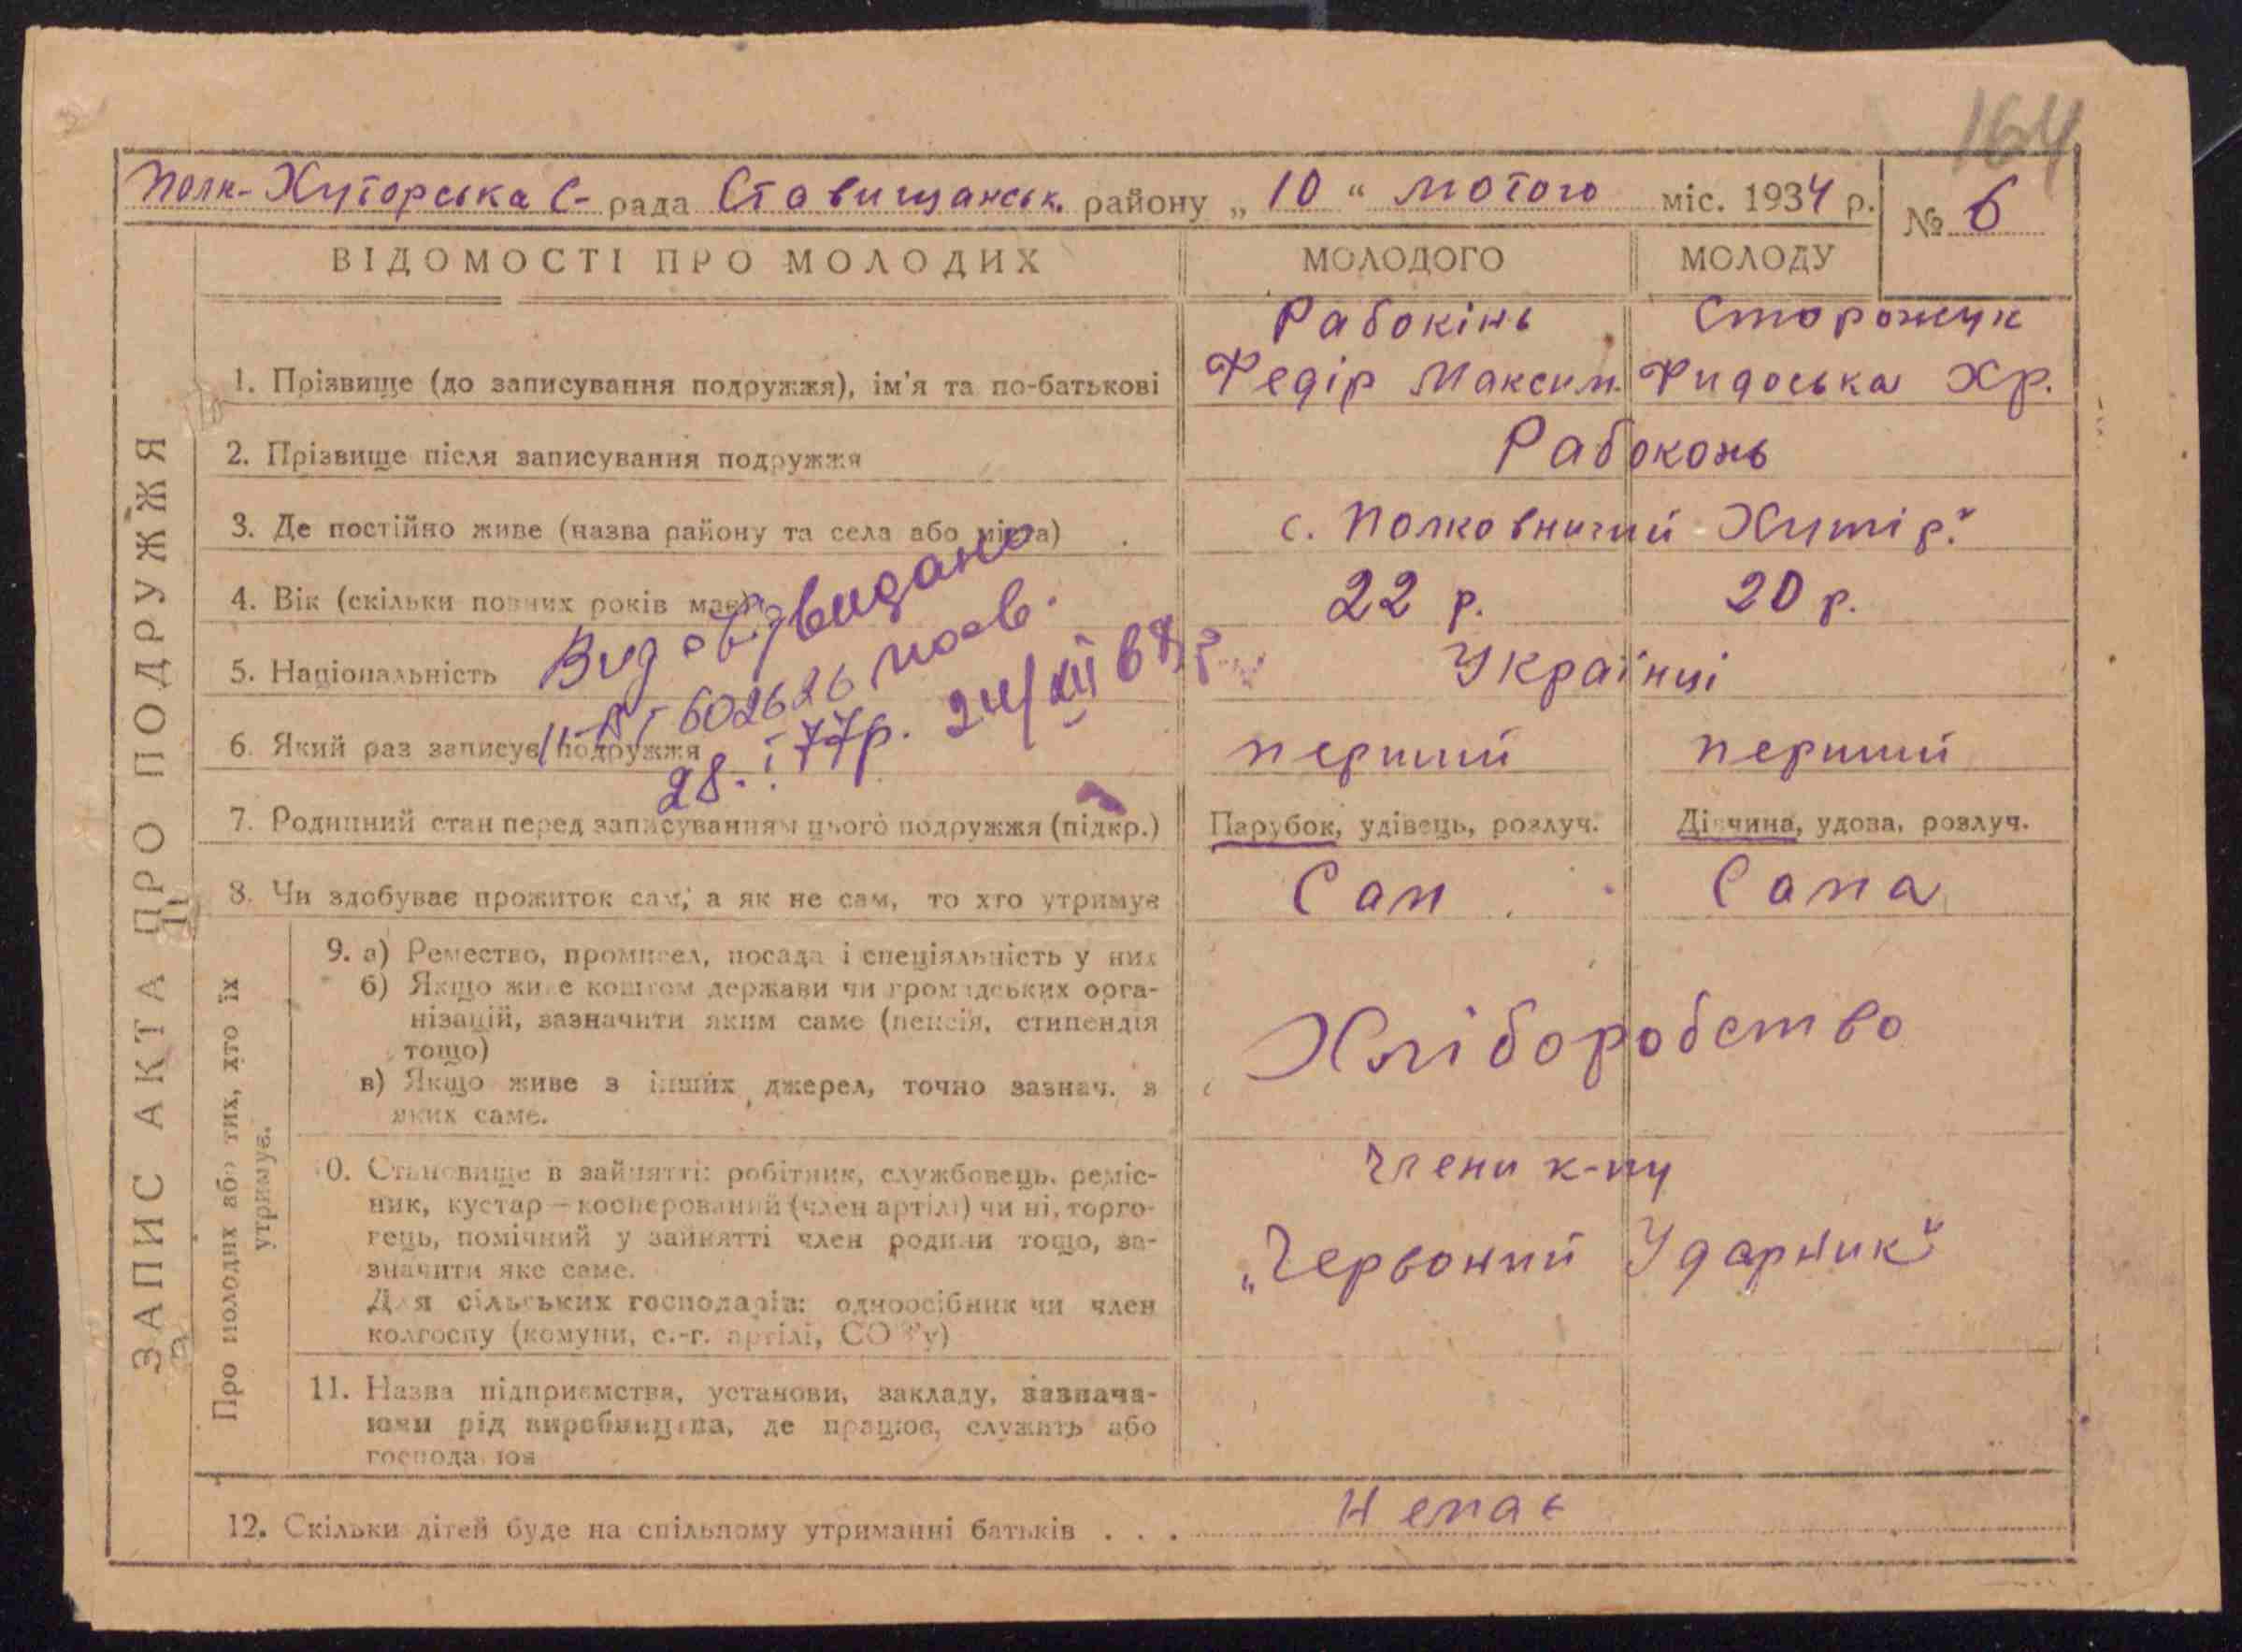 164
Полк-Хуторська С- рада Ставищанськ. району „ 10 “ лютого міс. 1934 р.
№ 6
ВІДОМОСТІ ПРО МОЛОДИХ
МОЛОДОГО
МОЛОДУ
ЗАПИС АКТА ПРО ПОДРУЖЖЯ
1. Прізвище (до записування подружжя), ім'я та по-батькові
Рабокінь
Федір Максим.
Сторожук
Фидоська Хр.
2. Прізвище після записування подружжя
Рабоконь
3. Де постійно живе (назва району та села або міста)
с. Полковничий Хутір."
4. Вік (скільки повних років має)
22 р.
20 р.
5. Національність
Українці
6. Який раз записує подружжя
перший
перший
видано
602626
28. I 77р. 24/XII
7. Родинний стан перед записуванням цього подружжя (підкр.)
Парубок, удівець, розлуч.
Дівчина, удова, розлуч.
8. Чи здобуває прожиток сам, а як не сам, то хто утримує
Сам
Сама
Про молодих або тих, хто їх
утримує.
9. а) Ремество, промисел, посада і спеціяльність у них
б) Якщо живе коштом держави чи громадських орга-
нізацій, зазначити яким саме (пенсія, стипендія
тощо)
в) Якщо живе з інших джерел, точно зазнач. з
яких саме.
Хліборобство
10. Становище в зайнятті: робітник, службовець, реміс-
ник, кустар — кооперований (член артілі) чи ні, торго-
вець, помічний у зайнятті член родини тощо, за-
значити яке саме.
Для сільських господарів: одноосібник чи член
колгоспу (комуни, с.-г. артілі, СОЗ'у)
Члени к-пу
„Червоний Ударник"
11. Назва підприємства, установи, закладу, зазнача-
ючи рід виробництва, де працює, служить або
господарює
12. Скільки дітей буде на спільному утриманні батьків . . .
Немає